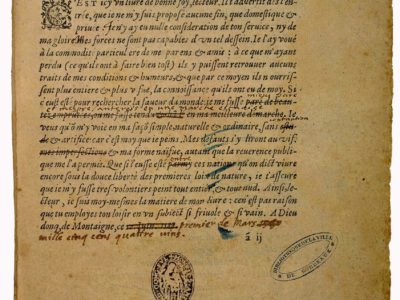 C'EST icy un liure de bonne foy, lecteur. Il t'aduertit dés l'en-
trée, que ie ne m'y suis proposé aucune fin, que domestique &
priuée. Ie n'y ay eu nulle consideration de ton seruice, ny de
ma gloire. Mes forces ne sont pas capables d'vn tel dessein. Ie l'ay voué
à la commodité particuliere de mes parens & amis: à ce que m'ayant
perdu (ce qu'ils ont à faire bien tost) ils y puissent retrouuer aucuns
traits de mes conditions & humeurs, & que par ce moyen ils nourrissent
plus entiere & plus vifue, la connoissance qu'ils ont eu de moy. Si
c'eust esté pour rechercher la faueur du monde, ie me fusse paré de beau-
tez empruntées
en ma meilleure demarche. Ie
veus qu'on m'y voie en ma façon simple, naturelle & ordinaire, sans
& artifice: car c'est moy que ie peins. Mes defauts s'y
& ma forme naïfue, autant que la reuerence publique
me l'a permis. Que si i'eusse esté
entre
parmy ces nations qu'on dict viure
encore sous la douce liberté des premieres loix de nature, ie t'asseure
que ie m'y fusse tres-volontiers peint tout entier, & tout nud. Ainsi, le-
cteur, ie suis moy-mesmes la matiere de mon liure: ce n'est pas raison
que tu employes ton loisir en vn subiect si friuole & si vain. A Dieu
donq, de Montaigne, ce
premier de Mars
mille cinq cens quattre vins.
ã ij